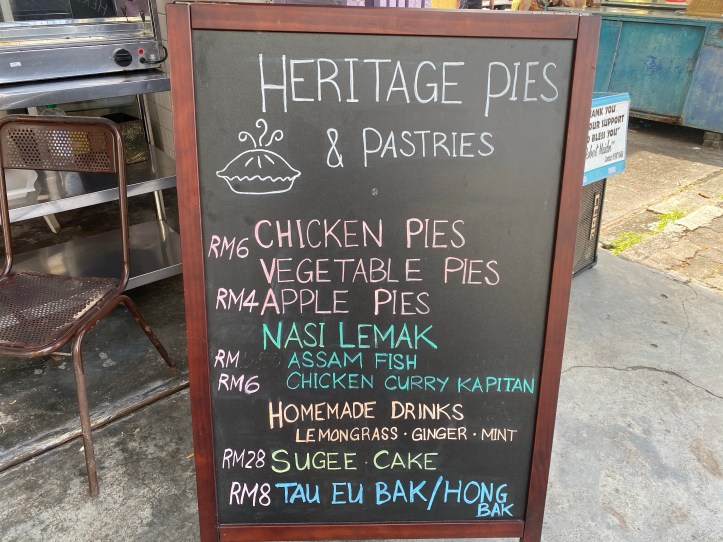 HERITAGE PIES
& PASTRIES
RM6 CHICKEN PIES
VEGETABLE PIES
RM4 APPLE PIES
NASI LEMAK
RM ASSAM FISH
RM6 CHICKEN CURRY KAPITAN
HOMEMADE DRINKS
LEMONGRASS · GINGER · MINT
RM28 SUGEE · CAKE
RM8 TAU EU BAK/HONG
BAK
ANK YOU
OUR SUPPORT
BLESS YOU"